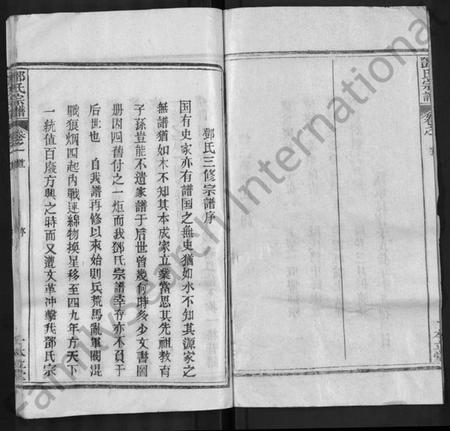 鄧氏三修宗譜序
国有史家亦有譜国之無史猶如水不知其源家之
無譜猶如木不知其本成家立業當思其先祖教育
子孫豈能不遺家譜于后世曾幾何時多少文書圖
册因四舊付之一炬而我鄧氏宗譜幸存亦不負于
后世也 自我譜再修以來始則兵荒馬亂軍閥混
戰狼烟四起内戰連綿物換星移至四九年方天下
一統值百廢方興之時而又遭文革冲擊我鄧氏宗
鄧氏宗譜
卷之一
序
鄧氏宗譜
卷之
FamilySearch International